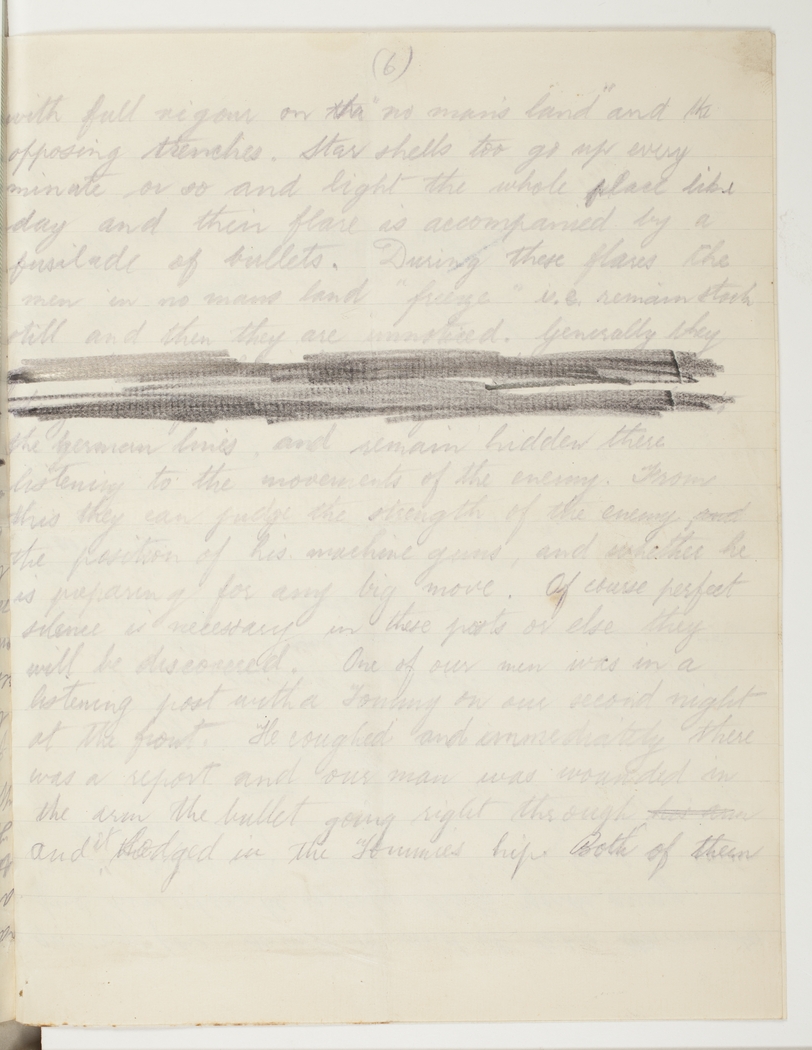 (6)
with full vigour on the "no man's land" and the
opposing trenches. Star shells too go up every
minute or so and light the whole place like
day and their flare is accompanied by a
fusilade of bullets. During these flares the
men in no mans land "freeze" i.e. remain stock
still and then they are unnoticed. Generally they
the german lines and remain hidden there
listening to the movements of the enemy. From
this they can judge the strength of the enemy and
the position of his machine guns, and whether he
is preparing for any big move. Of course perfect
silence is necessary in these posts or else they
will be discovered. One of our men was in a
listening post with a Tommy on our second night
at the front. He coughed and immediately there
was a report and our man was wounded in
the arm the bullet going right through his arm
and it lodged in the Tommies hip. Both of them